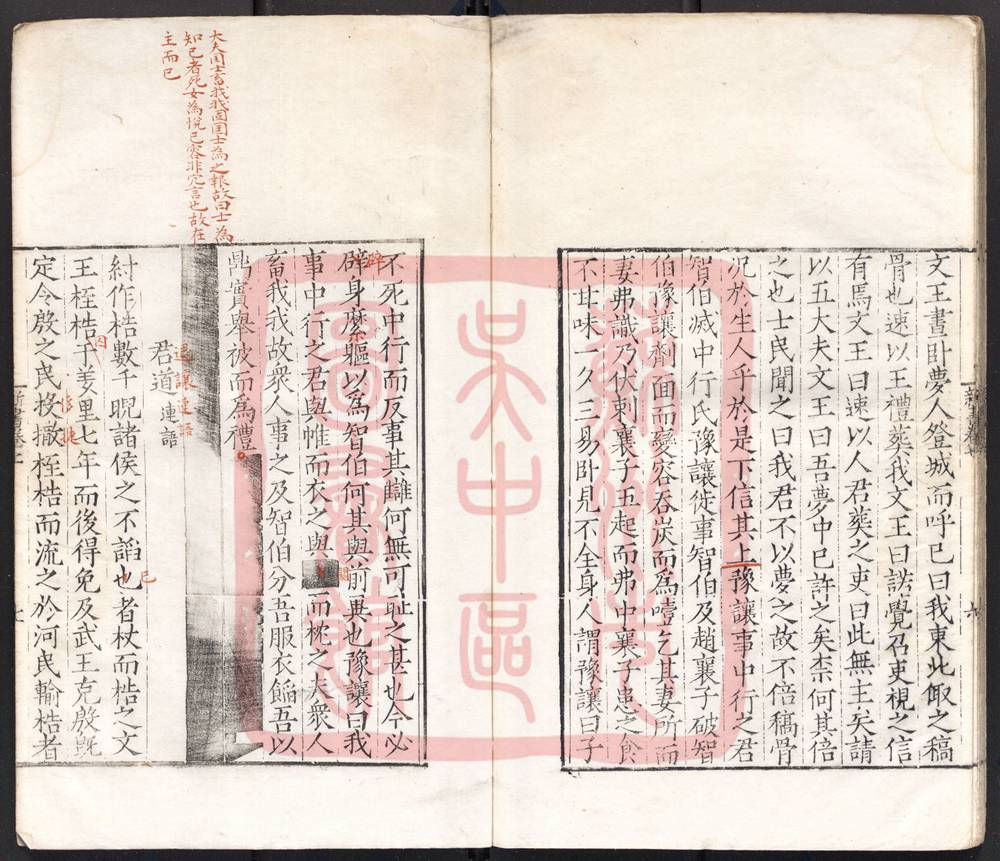 文王晝臥夢人登城而呼己曰我東北陬之槁
骨也速以王禮葬我文王曰諾覺召吏視之信
有焉文王曰速以人君葬之吏曰此無主矣請
以五大夫文王曰吾夢中已許之矣柰何其倍
之也士民聞之曰我君不以夢之故不倍槁骨
况於生人乎於是下信其上豫讓事中行之君
智伯滅中行氏豫讓徙事智伯及趙襄子破智
伯豫讓劑面而變容吞炭而為噎乞其妻所而
妻弗識乃伏刺襄子五起而弗中襄子患之食
不甘味一夕三易臥見不全身人謂豫讓曰子
大夫国士畜我我固国士為之報故曰士為
知己者死女為悅己容非宂言也故在
主而已
不死中行而反事其讎何無可恥之甚也今必
辟
辟身糜軀以為智伯何其與前異也豫讓曰我
事中行之君與帷而衣之與 而枕之夫衆人
畜我我故衆人事之及智伯分吾服衣餡吾以
鼎實舉被而為禮
君道連語
紂作梏數千睨諸侯之不諂也者杖而梏之文
已
王桎梏于姜里七年而後得免及武王克殷旣
定令殷之民投撤桎梏而流之於河民輸梏者